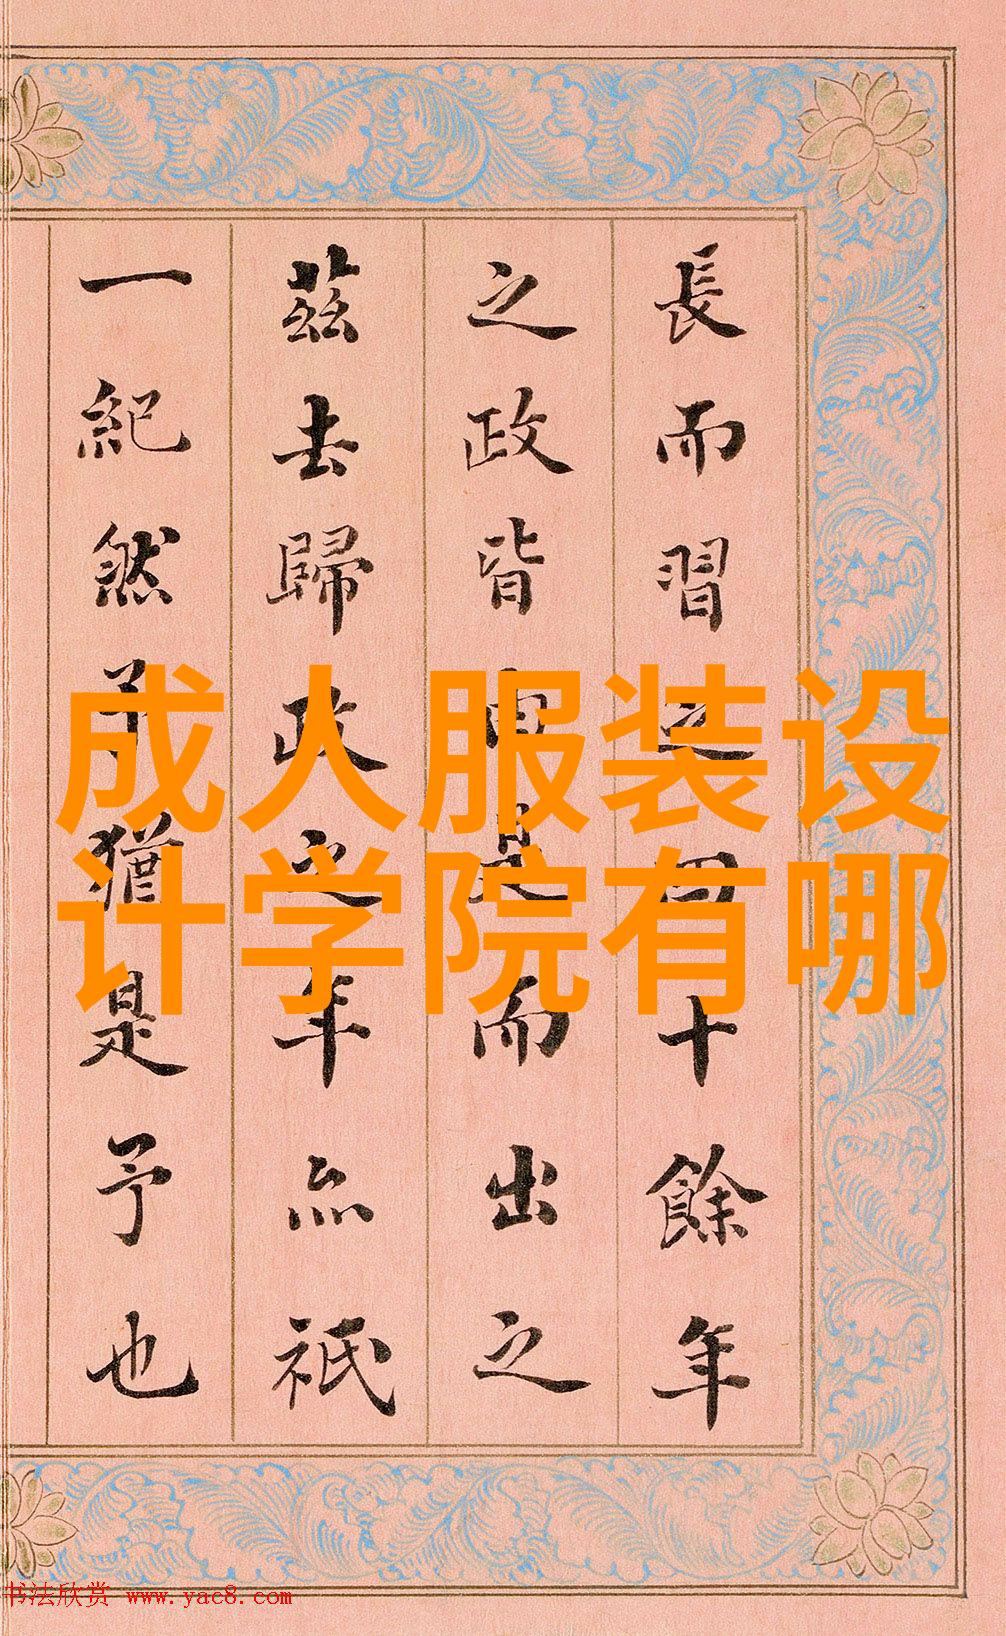 成人服装设
计学院有哪
長而習之四十餘年
之政皆由是而出之
茲去歸政之年亦祇
一紀然予猶是予也
书法欣赏 www.yac8.com